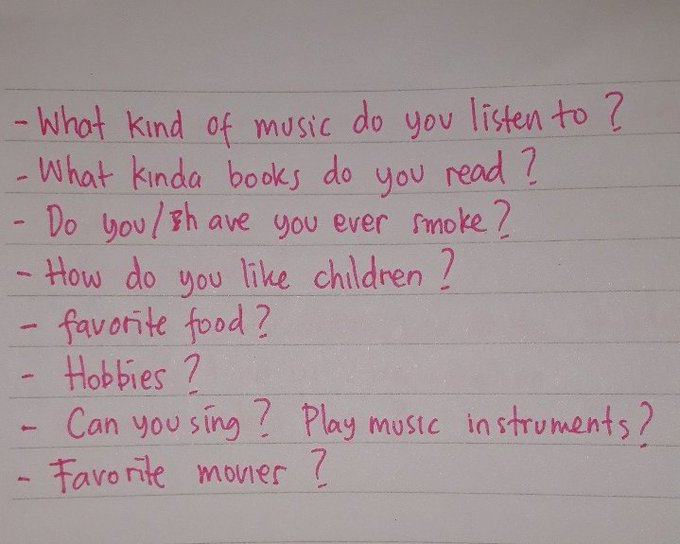 - What kind of music do you listen to?
- What kinda books do you read?
- Do you/have you ever smoke?
- How do you like children?
- favorite food?
- Hobbies?
- Can you sing? Play music instruments?
- Favorite movies?